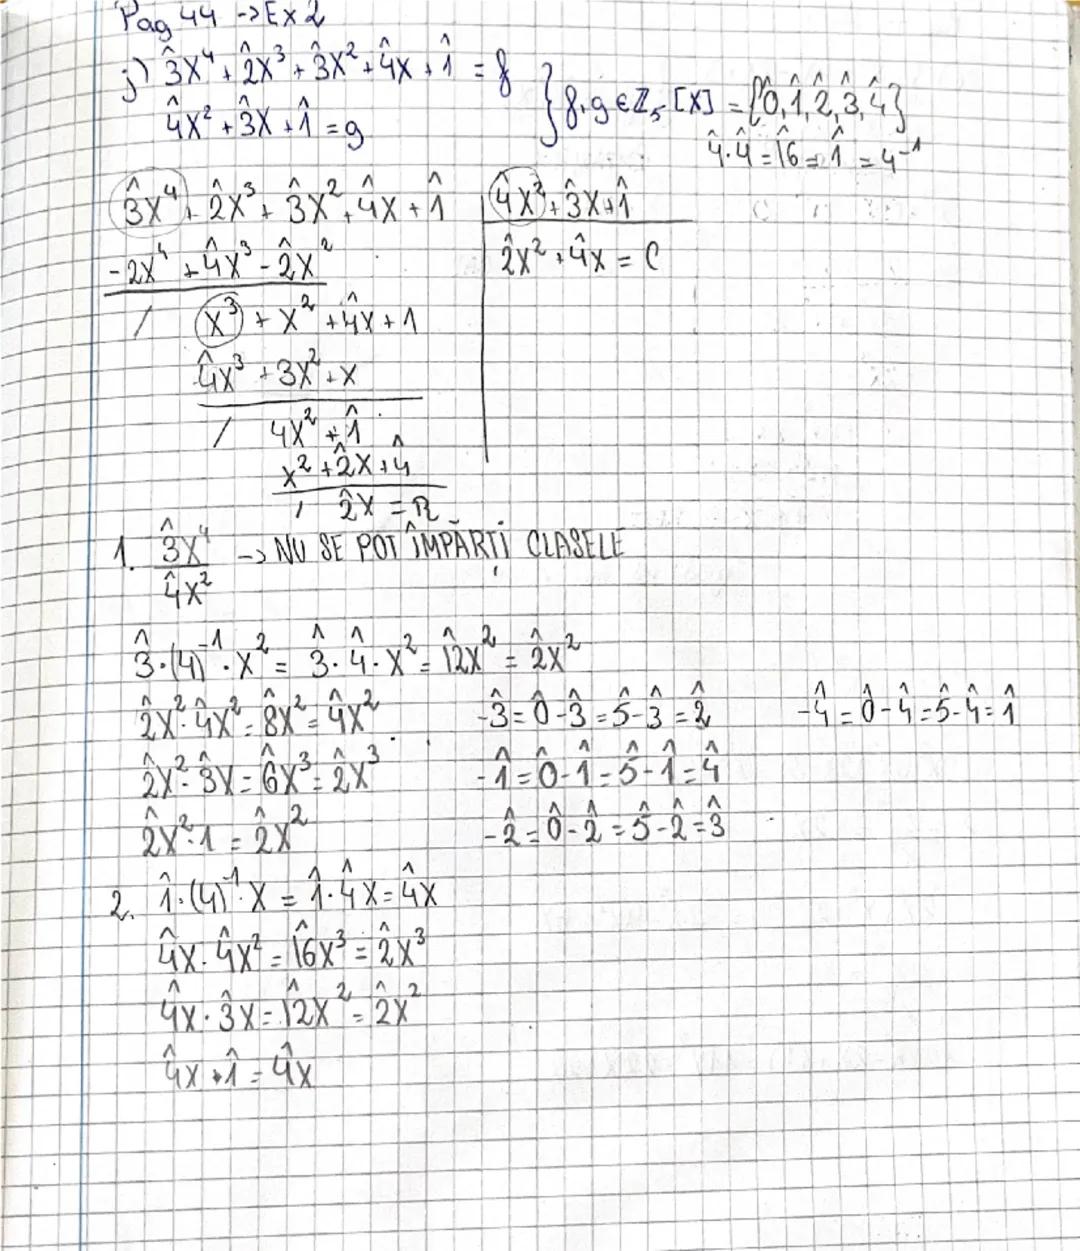 Pag 44 -> Ex 2
j) 3̂X⁴ + 2̂X³ + 3̂X² + 4̂X + 1̂ = f
4̂X² + 3̂X + 1̂ = g
} f, g ∈ Z₅ [X] = {0̂, 1̂, 2̂, 3̂, 4̂}
4̂·4̂ = 1̂6 = 1̂ = 4⁻¹
3̂X⁴ + 2̂X³ + 3̂X² + 4̂X + 1̂ | 4X² + 3̂X + 1̂
-2X⁴ + 4̂X³ - 2̂X² | 2̂X² + 4̂X = C
/ X³ + X² + 4̂X + 1
4̂X³ + 3X² + X
/ 4X² + 1̂
X² + 2̂X + 4̂
/ 2̂X = R
1. 3̂X⁴ / 4̂X² -> NU SE POT ÎMPĂRȚI CLASELE
3̂·(4)⁻¹·X² = 3̂·4̂·X² = 1̂2X² = 2̂X²
2̂X²·4̂X² = 8̂X² = 4̂X² -3̂ = 0̂-3̂ = 5̂-3̂ = 2̂ -4̂ = 0̂-4̂ = 5̂-4̂ = 1̂
2̂X²·3̂X = 6̂X³ = 2̂X³ -1̂ = 0̂-1̂ = 5̂-1̂ = 4̂
2̂X²·1 = 2̂X² -2̂ = 0̂-2̂ = 5̂-2̂ = 3̂
2. 1̂·(4)⁻¹·X = 1̂·4̂X = 4̂X
4̂X·4̂X² = 1̂6X³ = 2̂X³
4̂X·3̂X = 1̂2X² = 2̂X²
4̂X·1̂ = 4̂X